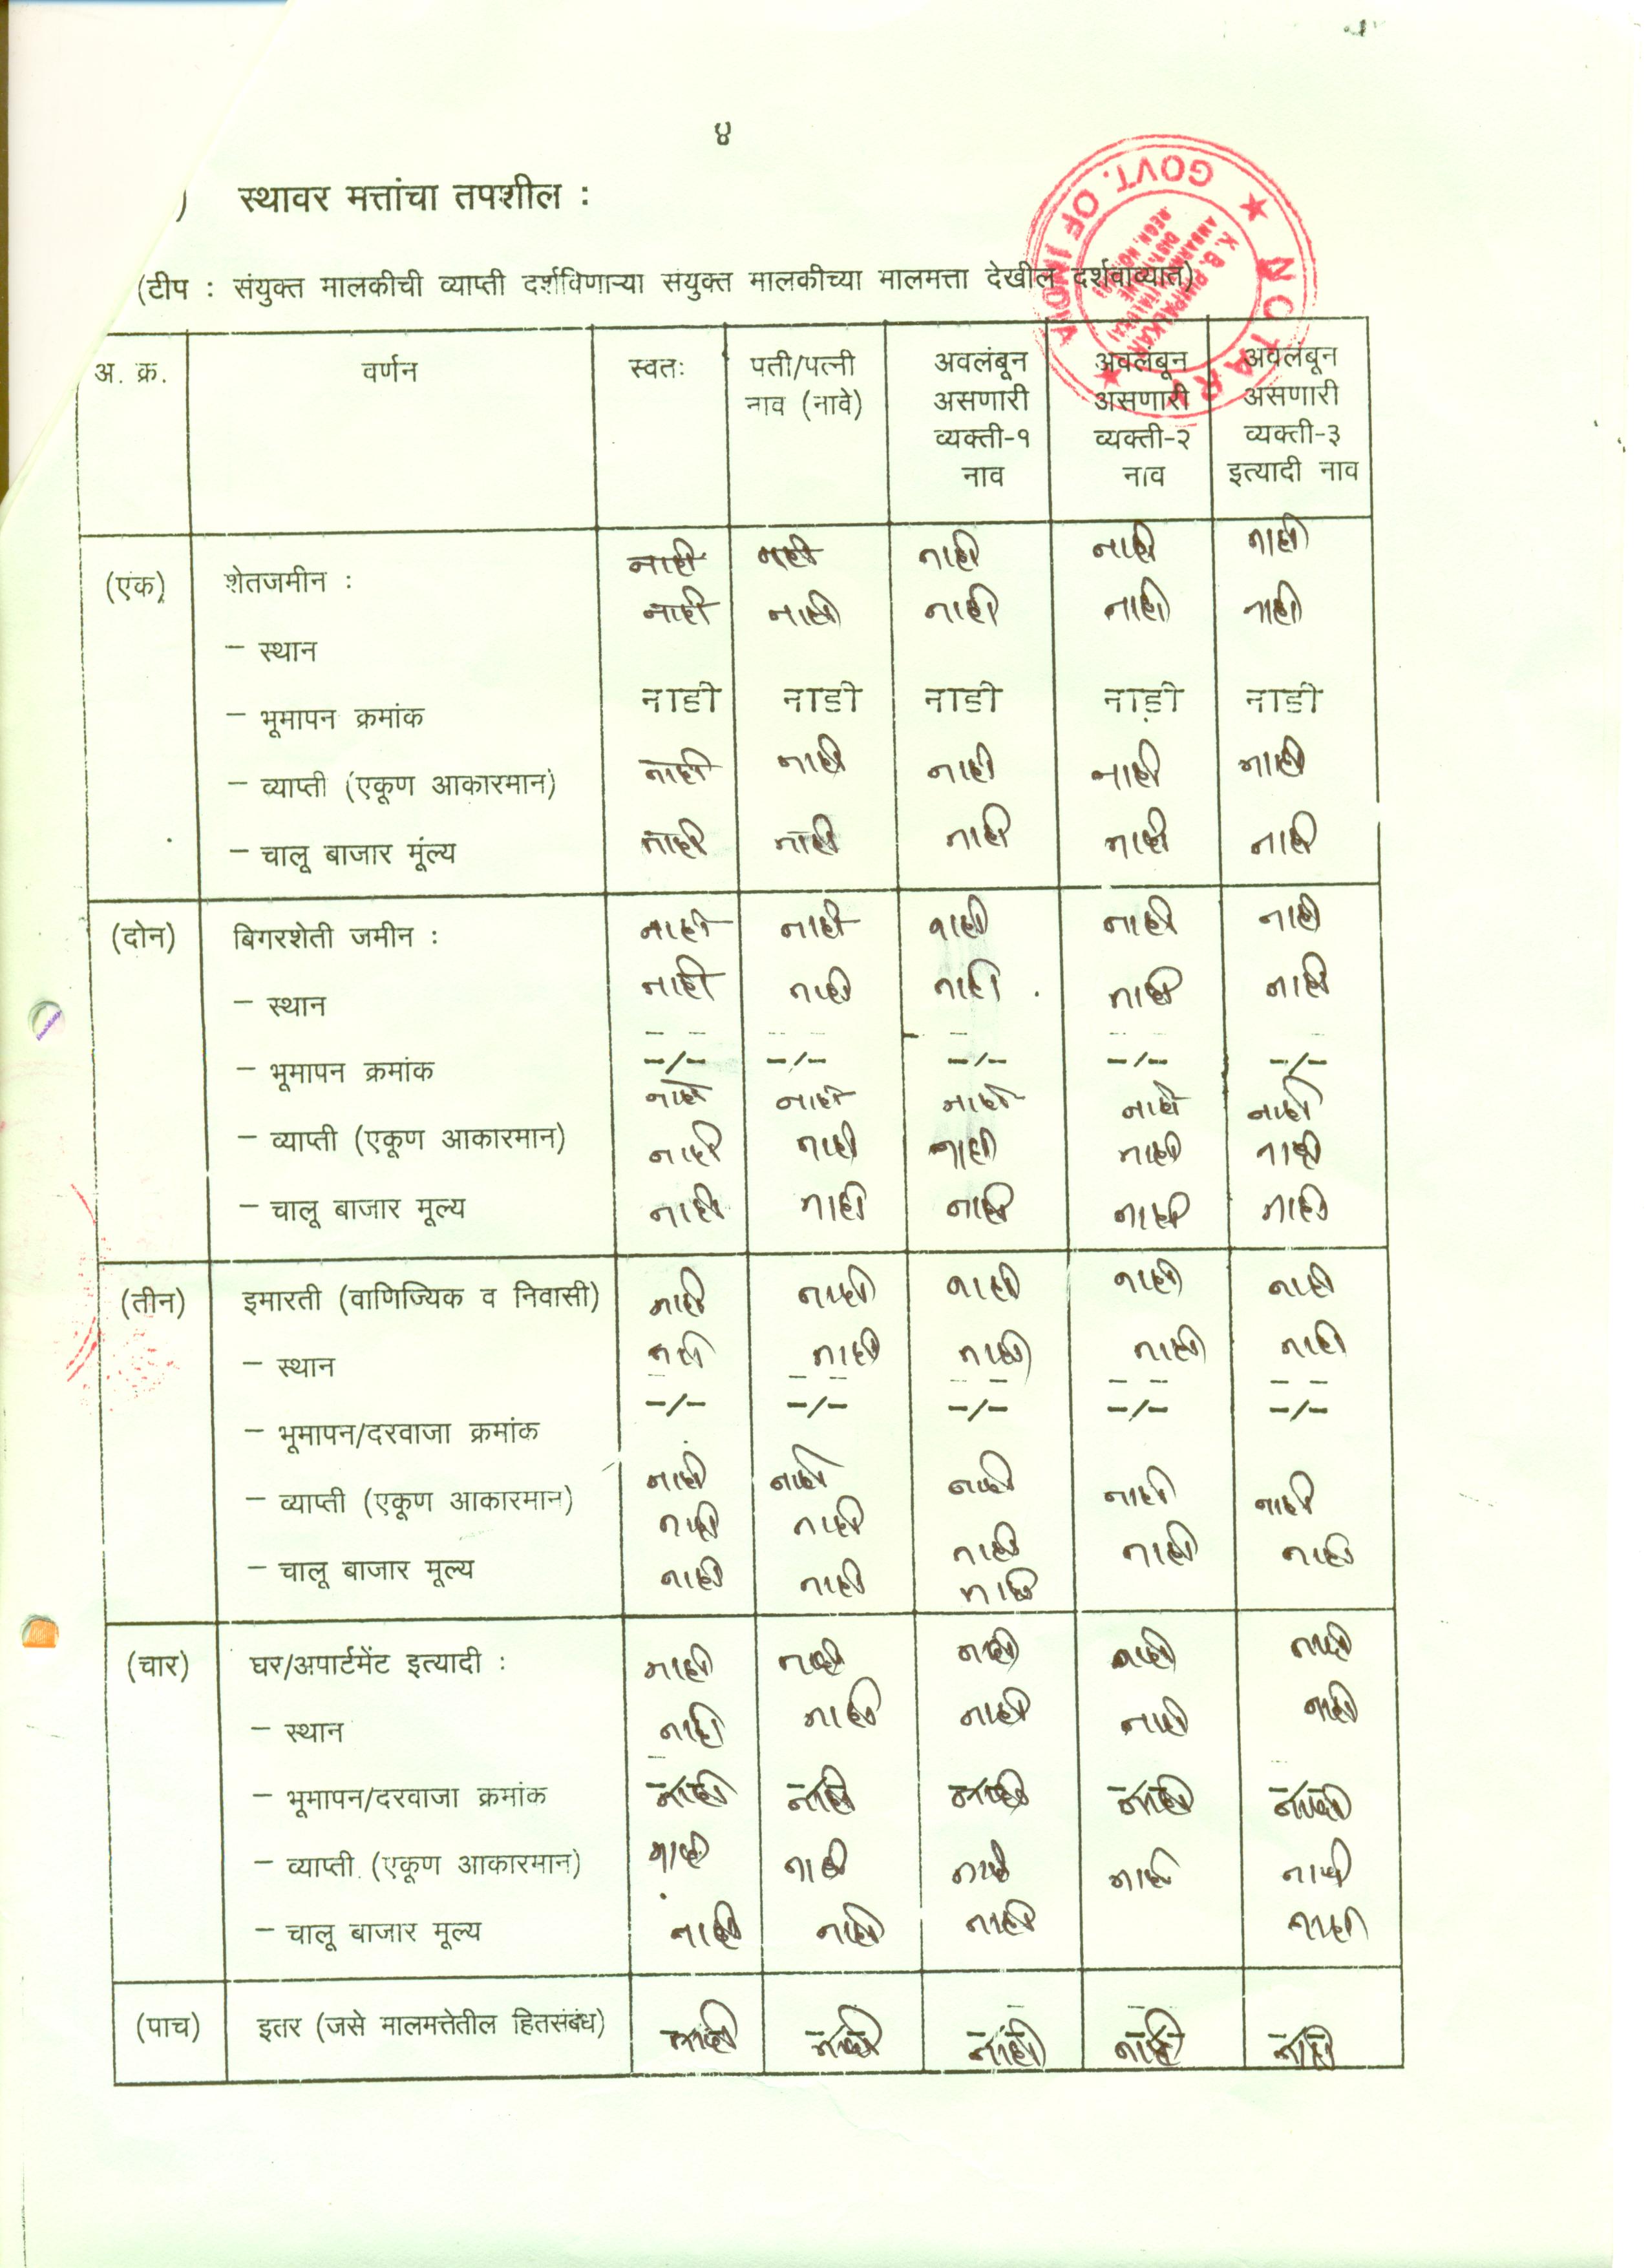 ४
) स्थावर मत्तांचा तपशील :
(टीप : संयुक्त मालकीची व्याप्ती दर्शविणाऱ्या संयुक्त मालकीच्या मालमत्ता देखील दर्शवाव्यात)
NOTARY ★ GOVT. OF INDIA ★
K. B. DHIPALKAR
अ. क्र. वर्णन स्वतः पती/पत्नी नाव (नावे) अवलंबून असणारी व्यक्ती-१ नाव अवलंबून असणारी व्यक्ती-२ नाव अवलंबून असणारी व्यक्ती-३ इत्यादी नाव
(एक) शेतजमीन : नाही नाही नाही नाही नाही
– स्थान नाही नाही नाही नाही नाही
– भूमापन क्रमांक नाही नाही नाही नाही नाही
– व्याप्ती (एकूण आकारमान) नाही नाही नाही नाही नाही
– चालू बाजार मूंल्य नाही नाही नाही नाही नाही
(दोन) बिगरशेती जमीन : नाही नाही नाही नाही नाही
– स्थान नाही नाही नाही नाही नाही
– भूमापन क्रमांक –/– –/– –/– –/– –/–
नाही नाही नाही नाही नाही
– व्याप्ती (एकूण आकारमान) नाही नाही नाही नाही नाही
– चालू बाजार मूल्य नाही नाही नाही नाही नाही
(तीन) इमारती (वाणिज्यिक व निवासी) नाही नाही नाही नाही नाही
– स्थान नाही नाही नाही नाही नाही
– भूमापन/दरवाजा क्रमांक –/– –/– –/– –/– –/–
नाही नाही नाही नाही नाही
– व्याप्ती (एकूण आकारमान) नाही नाही नाही नाही नाही
– चालू बाजार मूल्य नाही नाही नाही
(चार) घर/अपार्टमेंट इत्यादी : नाही नाही नाही नाही नाही
– स्थान नाही नाही नाही नाही नाही
– भूमापन/दरवाजा क्रमांक नाही नाही नाही नाही नाही
– व्याप्ती (एकूण आकारमान) नाही नाही नाही नाही नाही
– चालू बाजार मूल्य नाही नाही नाही नाही
(पाच) इतर (जसे मालमत्तेतील हितसंबंध) नाही नाही नाही नाही नाही